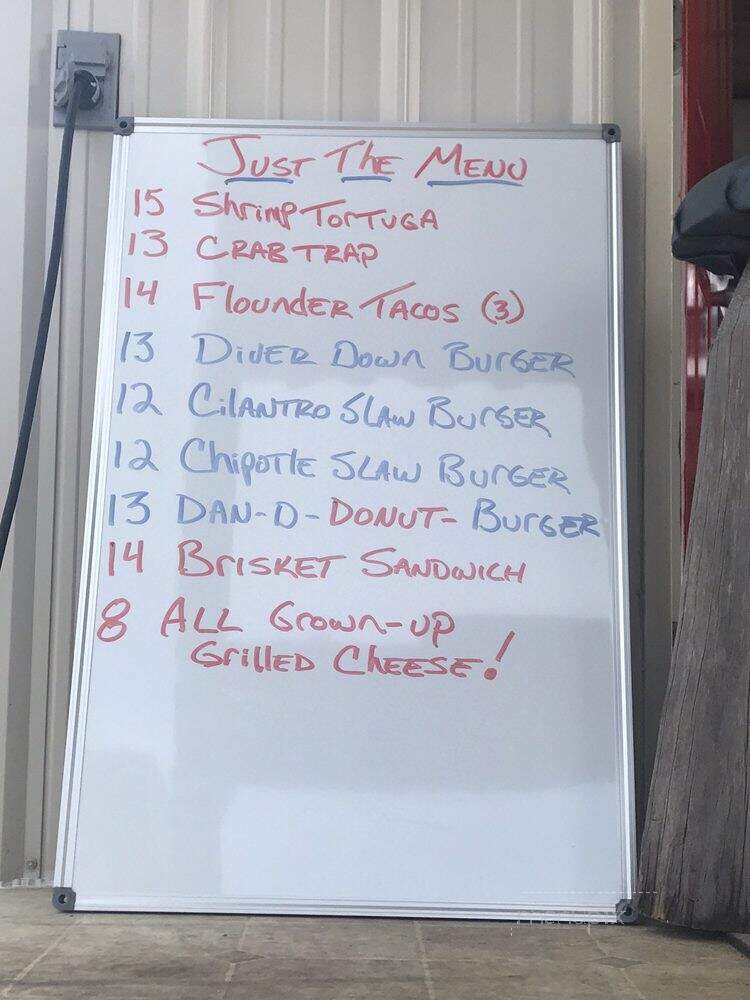 Just The Menu
15 Shrimp Tortuga
13 Crab Trap
14 Flounder Tacos (3)
13 Diver Down Burger
12 Cilantro Slaw Burger
12 Chipotle Slaw Burger
13 Dan-D-Donut-Burger
14 Brisket Sandwich
8 All Grown-up
Grilled Cheese!